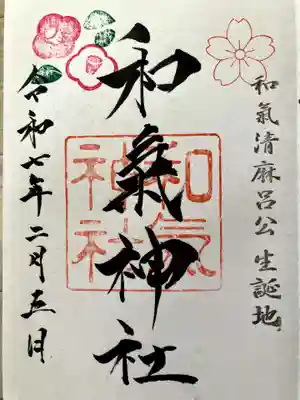 和氣清麻呂公 生誕地
和氣神社
和氣
神社
令和七年二月日